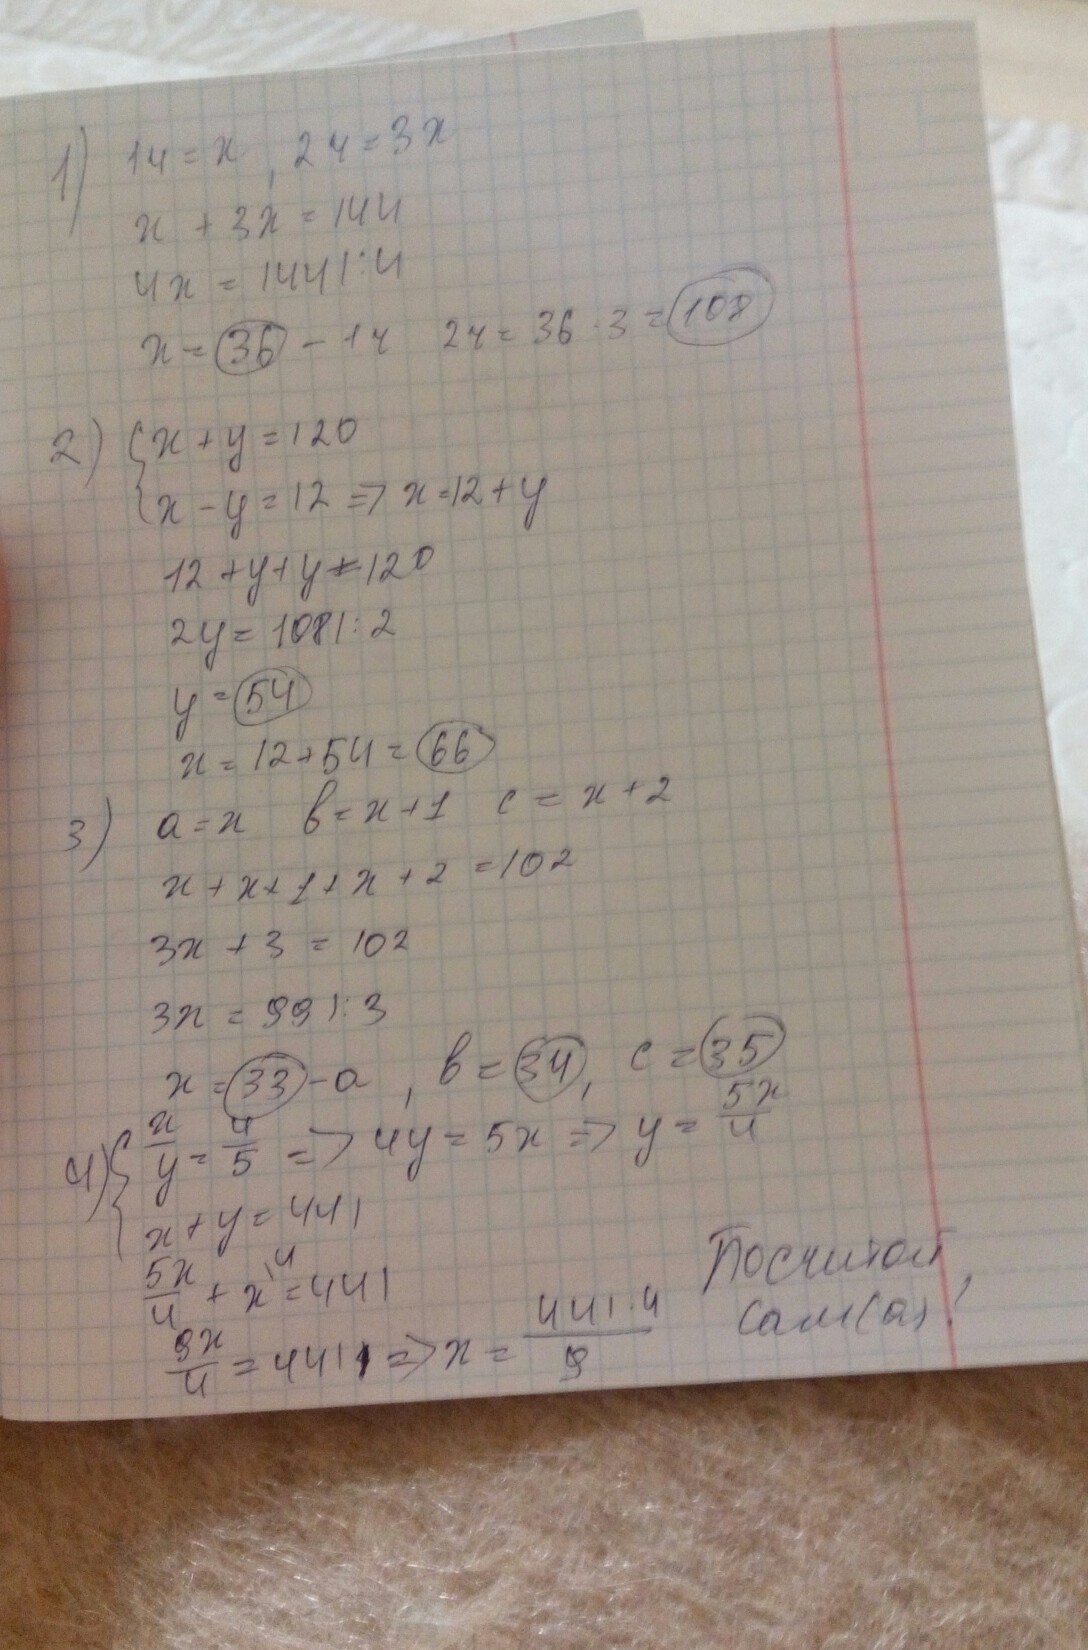 1) 1ч = x, 2ч = 3x
x + 3x = 144
4x = 144 |:4
x = 36 - 1ч 2ч = 36 · 3 = 108
2) { x + y = 120
x - y = 12 => x = 12 + y
12 + y + y = 120
2y = 108 |:2
y = 54
x = 12 + 54 = 66
3) a = x b = x + 1 c = x + 2
x + x + 1 + x + 2 = 102
3x + 3 = 102
3x = 99 |:3
x = 33 - a, b = 34, c = 35
4) { x/y = 4/5 => 4y = 5x => y = 5x/4
x + y = 441
5x/4 + x\4 = 441
9x/4 = 441 => x = 441·4/9
Посчитай
сам(а)!